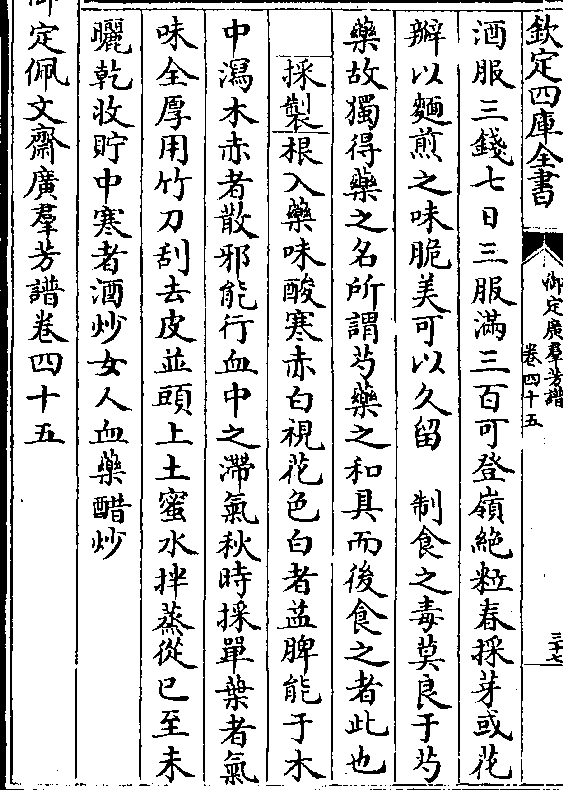 欽定四庫全書
御定廣羣芳譜
卷四十五
三十七
酒服三錢七日三服滿三百可登嶺絶粒春採芽或花
瓣以麵煎之味脆美可以久留 制食之毒莫良于芍
藥故獨得藥之名所謂芍藥之和具而後食之者此也
採製根入藥味酸寒赤白視花色白者益脾能于木
中瀉木赤者散邪能行血中之滯氣秋時採單葉者氣
味全厚用竹刀刮去皮並頭上土蜜水拌蒸從巳至未
曬乾收貯中寒者酒炒女人血藥醋炒
御定佩文齋廣羣芳譜卷四十五